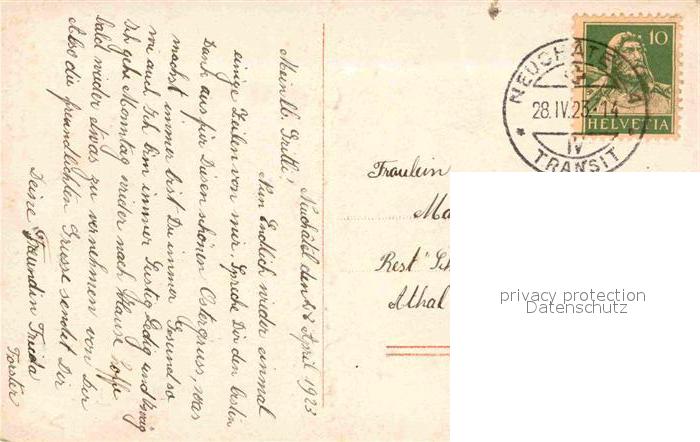 Neuchâtel den 28 April 1923
Mein lb. Gritli!
Nun Endlich wieder einmal
einige Zeilen von mir. Spreche Dir den besten
Dank aus für Diesen schönen Ostergruss, was
machst immer bist Du immer Gesund so
wie auch ich bin immer Lustig Ledig und
ich gehe Monntag wieder nach Hause hoffe
bald wieder etwas zu vernehmen von Dir
Also die freundlichsten Grüsse sendet Dir
Deine Freundin Frieda
Forster
NEUCHÂTEL
28.IV.23-14
IV
TRANSIT
10
HELVETIA
Fräulein
Ma
Rest. Sch
Athal
privacy protection
Datenschutz